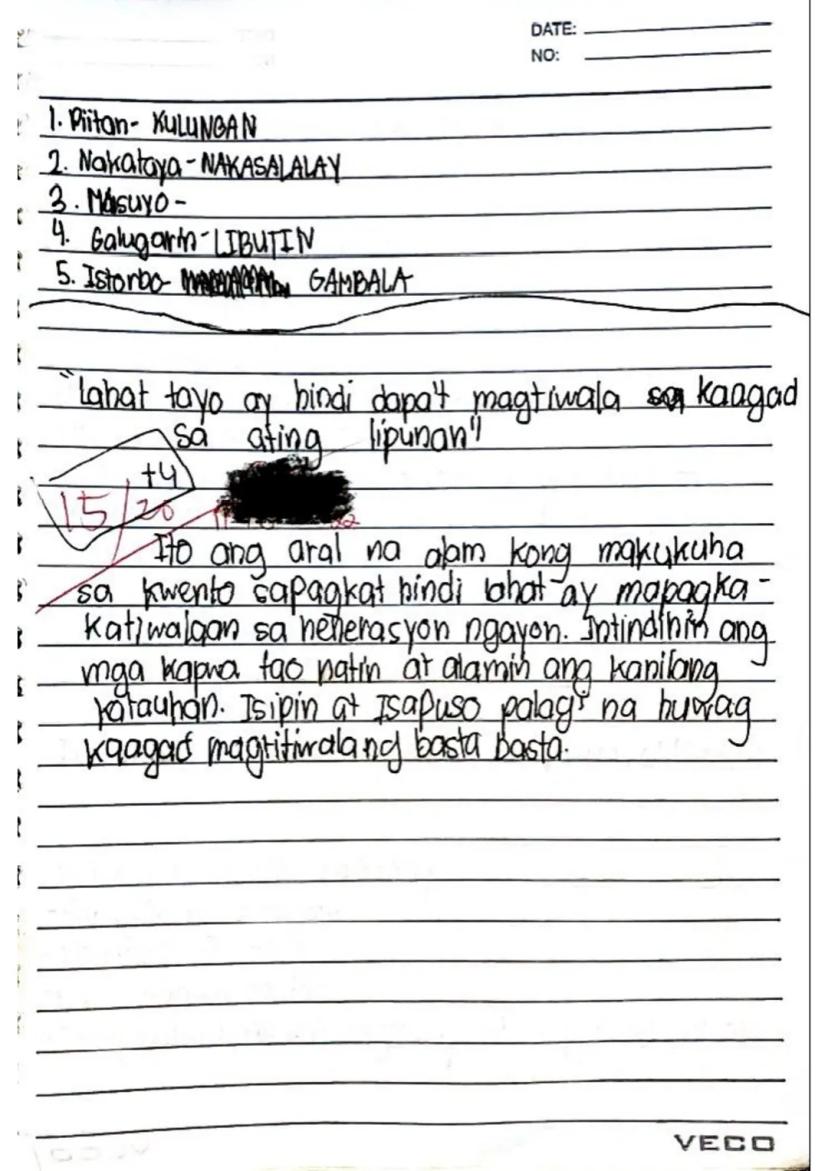 DATE:
NO:
1. Piitan- KULUNGAN
2. Nakataya - NAKASALALAY
3. Masuyo -
4. Galugarin - LIBUTIN
5. Istorbo- GAMBALA
"Lahat tayo ay hindi dapa't magtiwala kaagad
sa ating lipunan"
+4
15/20
Ito ang aral na alam kong makukuha
sa kwento sapagkat hindi lahat ay mapagka-
katiwalaan sa henerasyon ngayon. Intindihin ang
mga kapwa tao natin at alamin ang kanilang
katauhan. Isipin at Isapuso palagi na huwag
kaagad magtitiwalang basta basta.
VECO